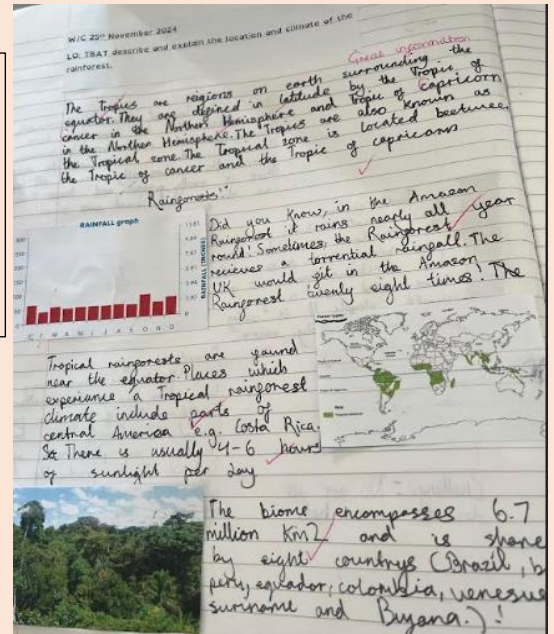 W/C 25th November 2024
LO: TBAT describe and explain the location and climate of the
rainforest.
Great information
The Tropics are reigions on earth surrounding the
equator. They are defined in latitude by the Tropic of
cancer in the Northern Hemisphere and Tropic of Capricorn
in the Northen Hemisphere. The Tropics are also known as
the Tropical zone. The Tropical zone is located beetween
the Tropic of cancer and the Tropic of capricorn
Rainforests!
RAINFALL graph
RAINFALL (INCHES)
J F M A M J J A S O N D
Did you know, in the Amazon
Rainforest it rains nearly all year
round! Sometimes, the Rainforest
recieves a torrential rainfall. The
UK would fit in the Amazon
Rainforest twenty eight times! The
Tropical rainforests are found
near the equator. Places which
experiance a Tropical rainforest
climate include parts of
central America e.g. Costa Rica.
So There is usually 4-6 hours
of sunlight per day
The biome encompasses 6.7
million Km2 and is share
by eight countrys (Brazil, b
peru, equador, colombia, venesue
suriname and Buyana.) !